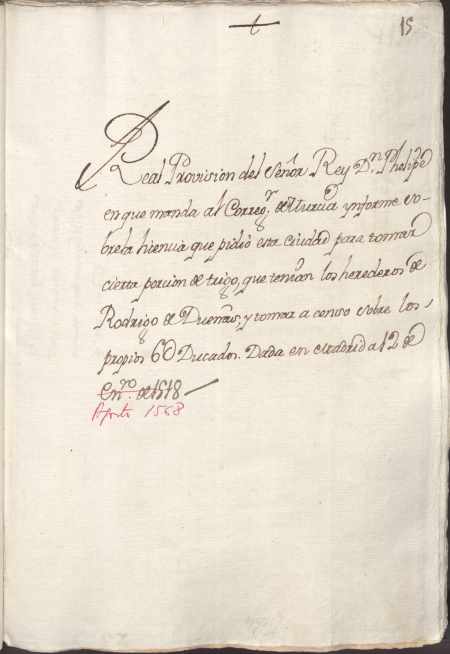 t
15
Real Provision del Señor Rey Dn. Phelipe
en que manda al Correg.r de Murcia ynforme so-
bre la licencia que pidió esta ciudad para tomar
cierta porcion de trigo, que tenian los herederos de
Rodrigo de Dueñas, y tomar a censo sobre los
propios 60 Ducados. Dada en Madrid a 12 de
En.ro de 1518
Agosto 1568